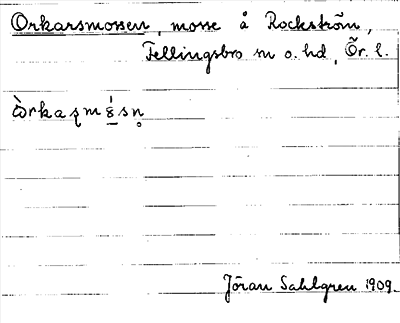 Orkarsmossen, mosse å Rockström,
Fellingsbro sn o. hd, Ör. l.
òrkaʂmɛ́sn̥
Jöran Sahlgren 1909.